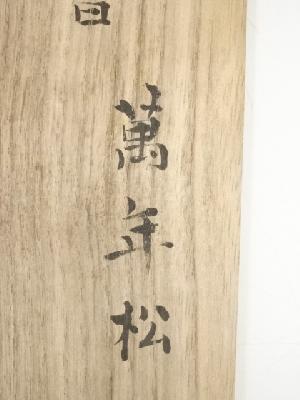 萬年松